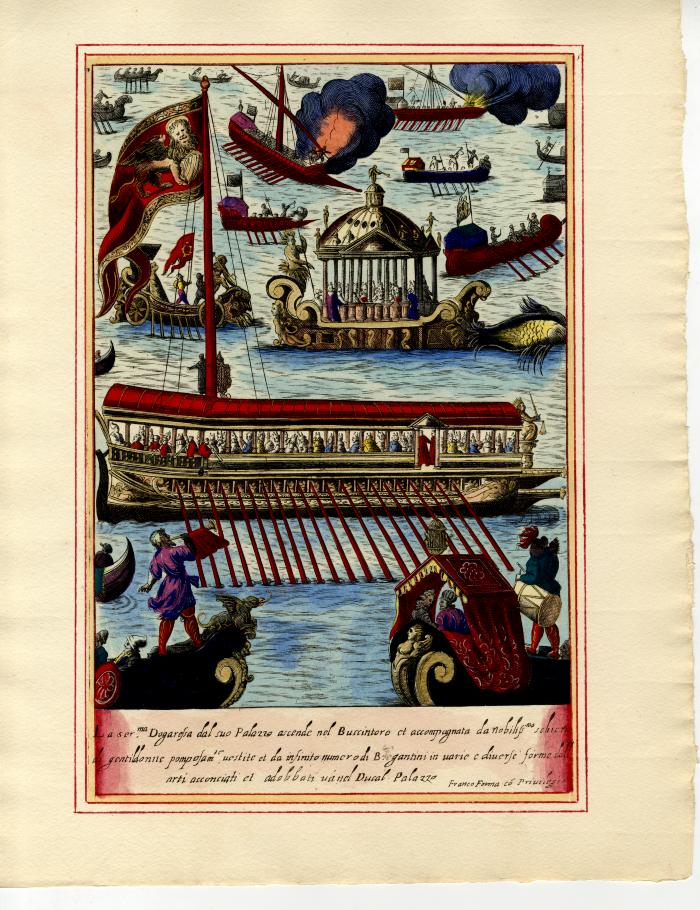 La ser.ma Dogaressa dal suo Palazzo ascende nel Buccintoro et accompagnata da nobiliss.mo schiera
di gentildonne pomposam.te vestite et da infinito numero di Bregantini in varie e diverse forme dall
arti acconciati et adobbati và nel Ducal Palazzo
Franco Forma cō Privilegio